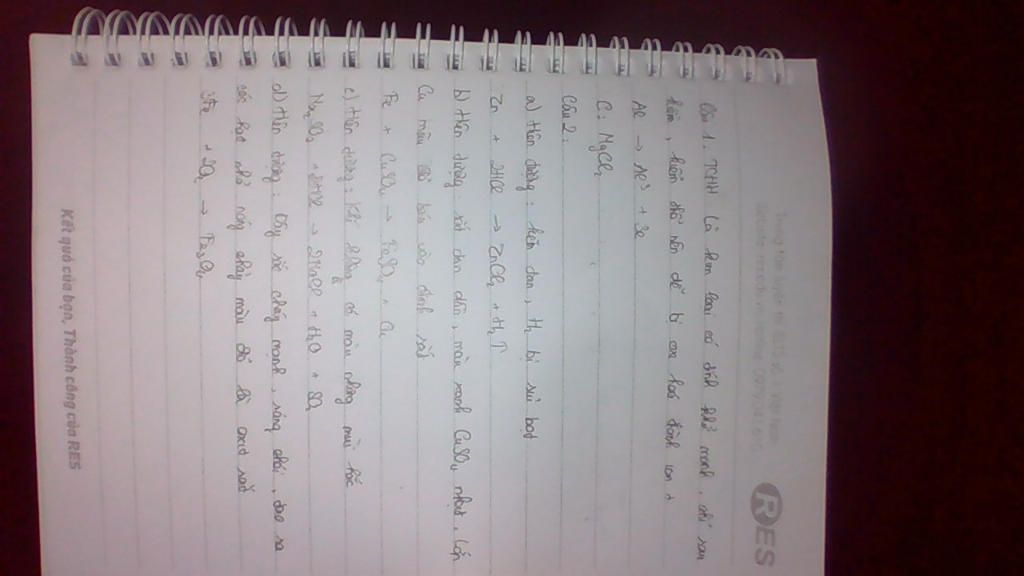 RES
Câu 1. TCHH Là kim loại có tính khử mạnh, chỉ sau
kiềm, kiềm thổ nên dễ bị oxi hoá thành ion +
Al → Al³ + 3e
C: MgCl₂
Câu 2:
a) Hiện tượng: kẽm tan, H₂ bị sủi bọt
Zn + 2HCl → ZnCl₂ + H₂↑
b) Hiện tượng sắt dần, màu xanh CuSO₄ nhạt,
Cu màu đỏ bám vào đinh sắt
Fe + CuSO₄ → FeSO₄ + Cu
c) Hiện tượng: khí không có màu nhưng mùi hắc
Na₂SO₃ + 2HCl → 2NaCl + H₂O + SO₂
d) Hiện tượng: cháy mạnh, sáng chói, tạo ra
các hạt nhỏ nóng chảy màu đỏ là oxit sắt
3Fe + 2O₂ → Fe₃O₄
Kết quả của bạn, Thành công của RES